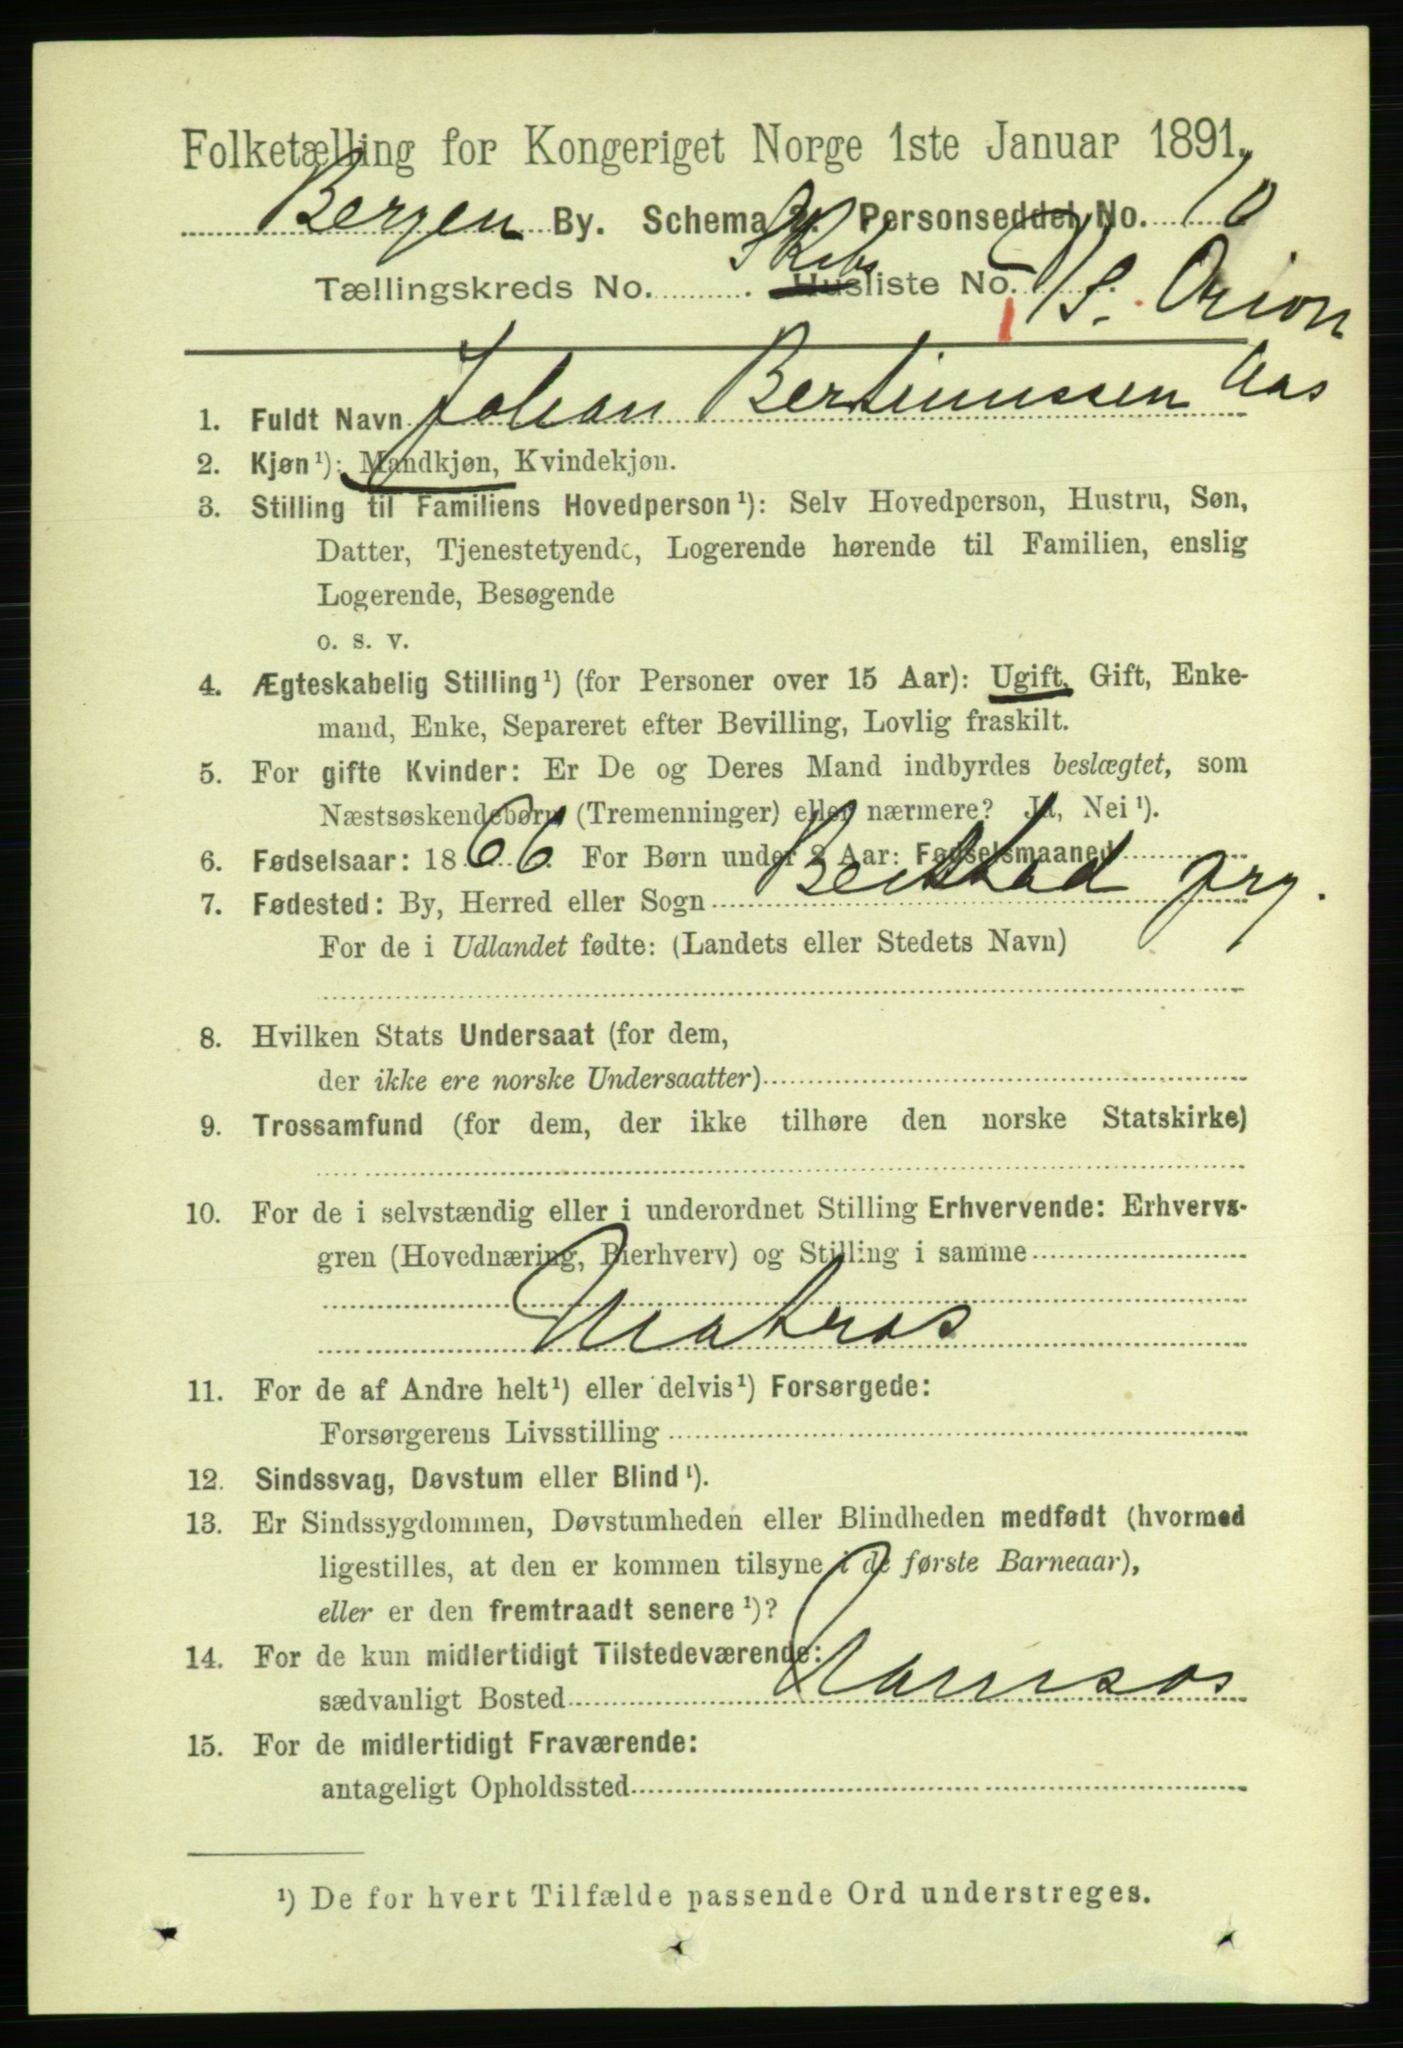 Folketælling for Kongeriget Norge 1ste Januar 1891.
Bergen By. Schema 2. Personseddel No. 10
Tællingskreds No. . Skibsliste No. D/S. Orion
1. Fuldt Navn Johan Bertinussen Aas
2. Kjøn ¹): Mandkjøn, Kvindekjøn.
3. Stilling til Familiens Hovedperson ¹): Selv Hovedperson, Hustru, Søn,
Datter, Tjenestetyende, Logerende hørende til Familien, enslig
Logerende, Besøgende
o. s. v.
4. Ægteskabelig Stilling ¹) (for Personer over 15 Aar): Ugift, Gift, Enke-
mand, Enke, Separeret efter Bevilling, Lovlig fraskilt.
5. For gifte Kvinder: Er De og Deres Mand indbyrdes beslægtet, som
Næstsøskendebørn (Tremenninger) eller nærmere? Ja, Nei ¹).
6. Fødselsaar: 1866 For Børn under 2 Aar: Fødselsmaaned
7. Fødested: By, Herred eller Sogn Beitstad prg.
For de i Udlandet fødte: (Landets eller Stedets Navn)
8. Hvilken Stats Undersaat (for dem,
der ikke ere norske Undersaatter)
9. Trossamfund (for dem, der ikke tilhøre den norske Statskirke)
10. For de i selvstændig eller i underordnet Stilling Erhvervende: Erhvervs-
gren (Hovednæring, Bierhverv) og Stilling i samme
Matros
11. For de af Andre helt ¹) eller delvis ¹) Forsørgede:
Forsørgerens Livsstilling
12. Sindssvag, Døvstum eller Blind ¹).
13. Er Sindssygdommen, Døvstumheden eller Blindheden medfødt (hvormed
ligestilles, at den er kommen tilsyne i de første Barneaar),
eller er den fremtraadt senere ¹)?
14. For de kun midlertidigt Tilstedeværende:
sædvanligt Bosted Namsos
15. For de midlertidigt Fraværende:
antageligt Opholdssted
¹) De for hvert Tilfælde passende Ord understreges.